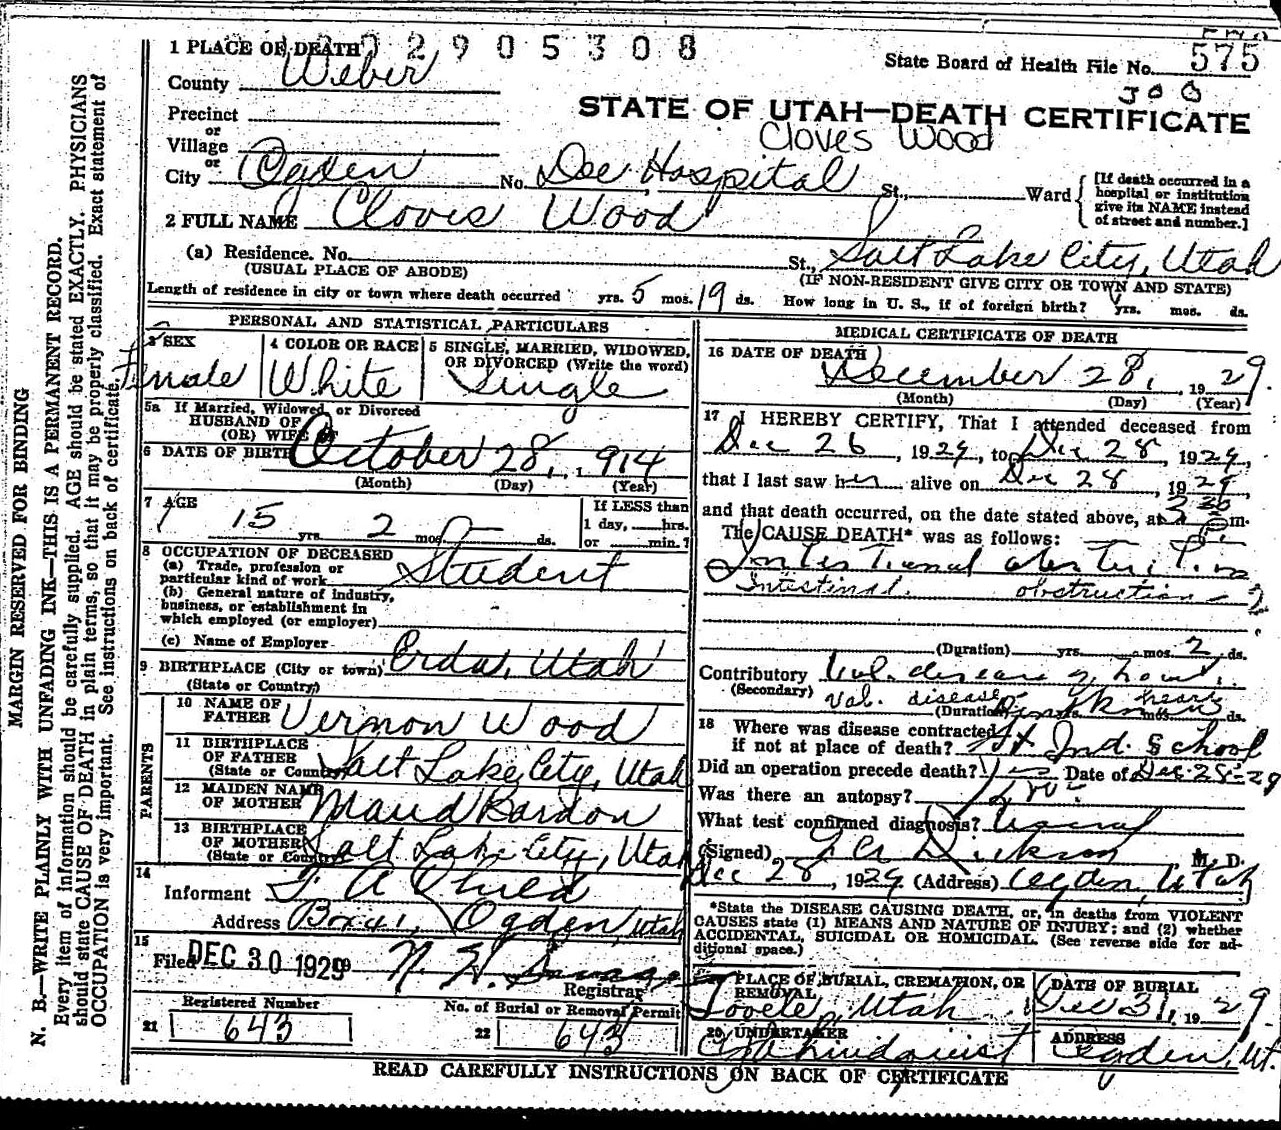 1 PLACE OF DEATH 2 9 0 5 3 0 8
County Weber
State Board of Health File No. 575
300
Precinct
or
Village
or
STATE OF UTAH—DEATH CERTIFICATE
Cloves Wood
City Ogden No. Dee Hospital St., Ward
[If death occurred in a
hospital or institution
give its NAME instead
of street and number.]
2 FULL NAME Clovis Wood
(a) Residence. No. St., Salt Lake City, Utah
(USUAL PLACE OF ABODE) (IF NON-RESIDENT GIVE CITY OR TOWN AND STATE)
Length of residence in city or town where death occurred yrs. 5 mos. 19 ds. How long in U. S., if of foreign birth? yrs. mos. ds.
PERSONAL AND STATISTICAL PARTICULARS
3 SEX
Female
4 COLOR OR RACE
White
5 SINGLE, MARRIED, WIDOWED,
OR DIVORCED (Write the word)
Single
5a If Married, Widowed, or Divorced
HUSBAND OF
(OR) WIFE OF
6 DATE OF BIRTH October 28, 1914
(Month) (Day) (Year)
7 AGE
15 yrs. 2 mos. — ds.
If LESS than
1 day, hrs.
or min.?
8 OCCUPATION OF DECEASED
(a) Trade, profession or
particular kind of work Student
(b) General nature of industry,
business, or establishment in
which employed (or employer)
(c) Name of Employer
9 BIRTHPLACE (City or town) Erda, Utah
(State or Country)
PARENTS
10 NAME OF
FATHER Vernon Wood
11 BIRTHPLACE
OF FATHER
(State or Country) Salt Lake City, Utah
12 MAIDEN NAME
OF MOTHER Maud Bardon
13 BIRTHPLACE
OF MOTHER
(State or Country) Salt Lake City, Utah
14
Informant
Address Box 41, Ogden, Utah
15
Filed DEC 30 1929
Registrar
Registered Number
21 643
No. of Burial or Removal Permit
22 643
MEDICAL CERTIFICATE OF DEATH
16 DATE OF DEATH
December 28, 1929
(Month) (Day) (Year)
17 I HEREBY CERTIFY, That I attended deceased from
Dec 26, 1929, to Dec 28, 1929,
that I last saw her alive on Dec 28, 1929,
and that death occurred, on the date stated above, at 2 30 P. m.
The CAUSE DEATH* was as follows:
Intestinal obstruction
Intestinal. obstruction - 2
(Duration) yrs. mos. 2 ds.
Contributory Val. disease of heart.
(Secondary) Val. disease heart
(Duration) yrs. mos. ds.
18 Where was disease contracted
if not at place of death? St Ind. School
Did an operation precede death? Yes Date of Dec-28-29
Was there an autopsy?
What test confirmed diagnosis?
(Signed) Dickson, M. D.
Dec 28, 1929 (Address) Ogden, Utah
*State the DISEASE CAUSING DEATH, or, in deaths from VIOLENT
CAUSES state (1) MEANS AND NATURE OF INJURY; and (2) whether
ACCIDENTAL, SUICIDAL OR HOMICIDAL. (See reverse side for ad-
ditional space.)
PLACE OF BURIAL, CREMATION, OR
REMOVAL
Tooele, Utah
DATE OF BURIAL
Dec 31, 1929
20 UNDERTAKER
Lindquist
ADDRESS
Ogden, Ut.
READ CAREFULLY INSTRUCTIONS ON BACK OF CERTIFICATE
MARGIN RESERVED FOR BINDING
N. B.—WRITE PLAINLY WITH UNFADING INK—THIS IS A PERMANENT RECORD.
Every item of information should be carefully supplied. AGE should be stated EXACTLY. PHYSICIANS
should state CAUSE OF DEATH in plain terms, so that it may be properly classified. Exact statement of
OCCUPATION is very important. See instructions on back of certificate.